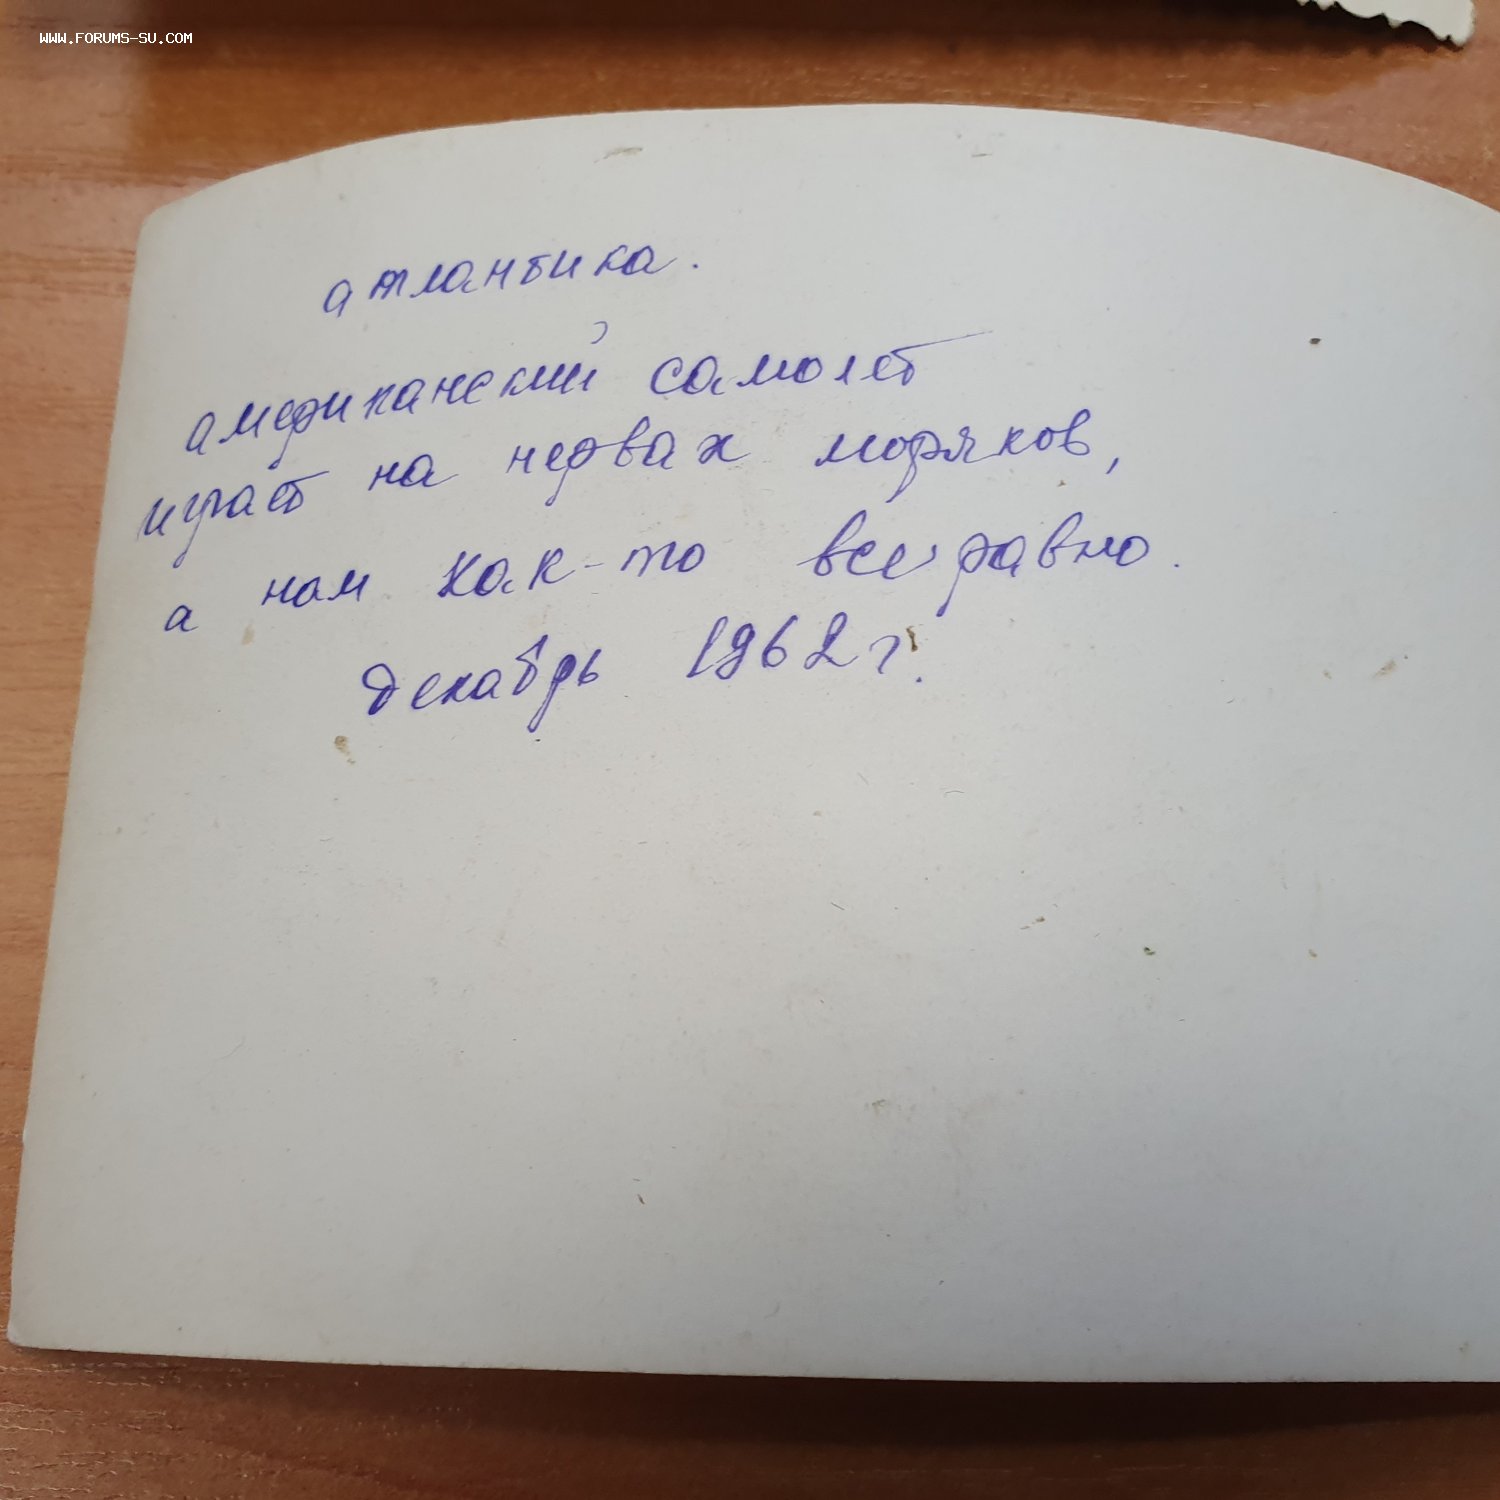 WWW.FORUMS-SU.COM
атлантика.
американский самолет
играет на нервах моряков,
а нам как-то все равно.
декабрь 1962 г.